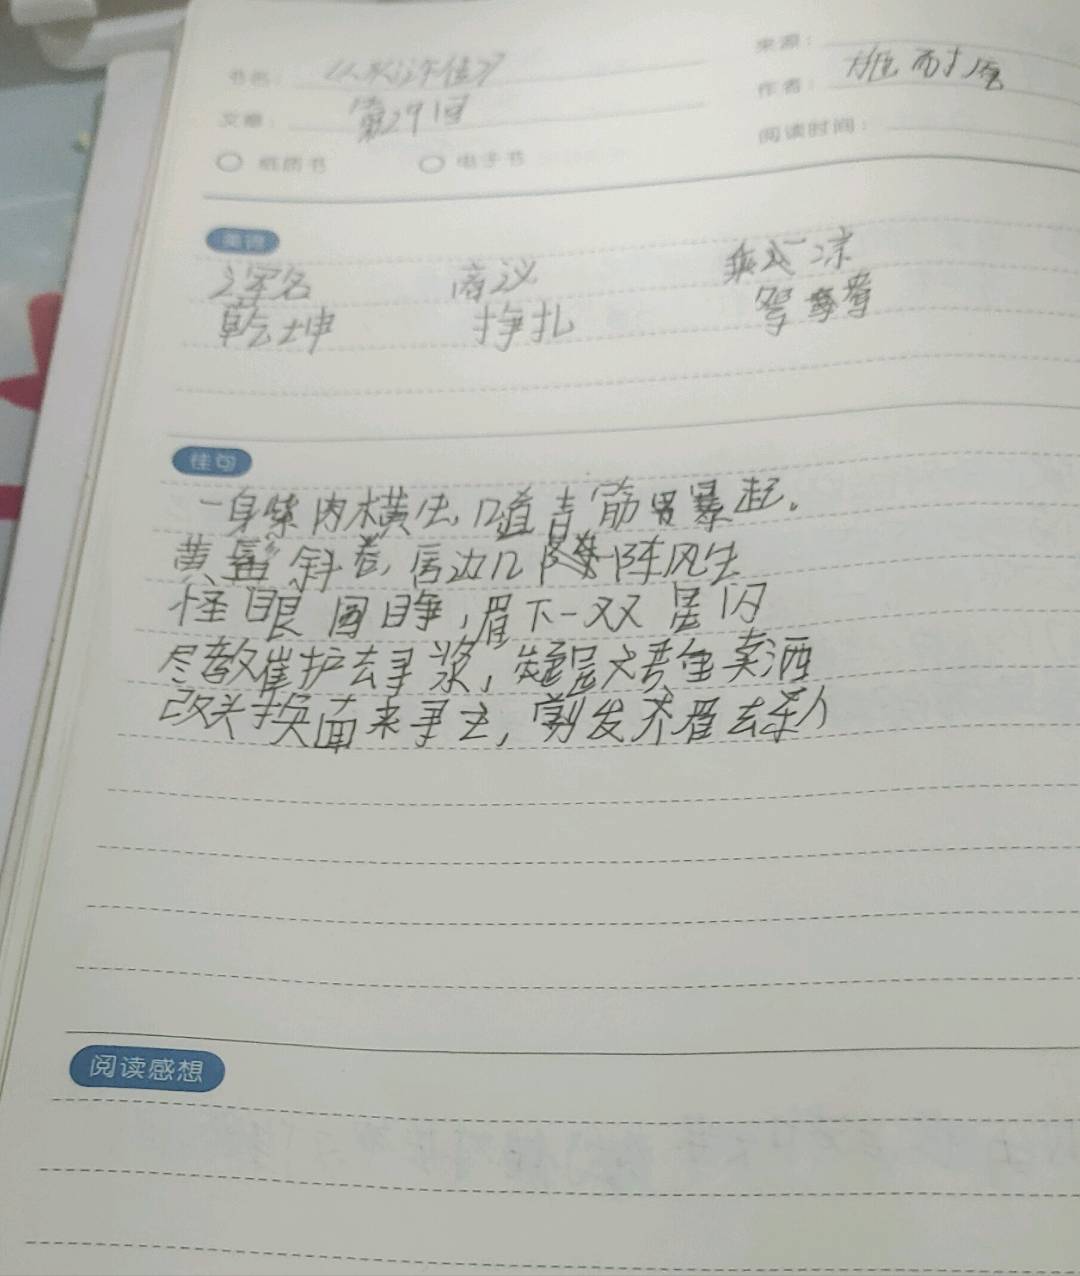 书名： 《水浒传》
来源：
文章： 第29回
作者： 施耐庵
纸质书 电子书
阅读时间：
美词
浑名 商议 乘凉
乾坤 挣扎 鸳鸯
佳句
一身紫肉横生，几道青筋暴起。
黄髯斜卷，唇边几阵风生
怪眼圆睁，眉下一双星闪
尽教崔护去寻浆，疑是文君重卖酒
改头换面来寻主，剪发齐眉去杀人
阅读感想